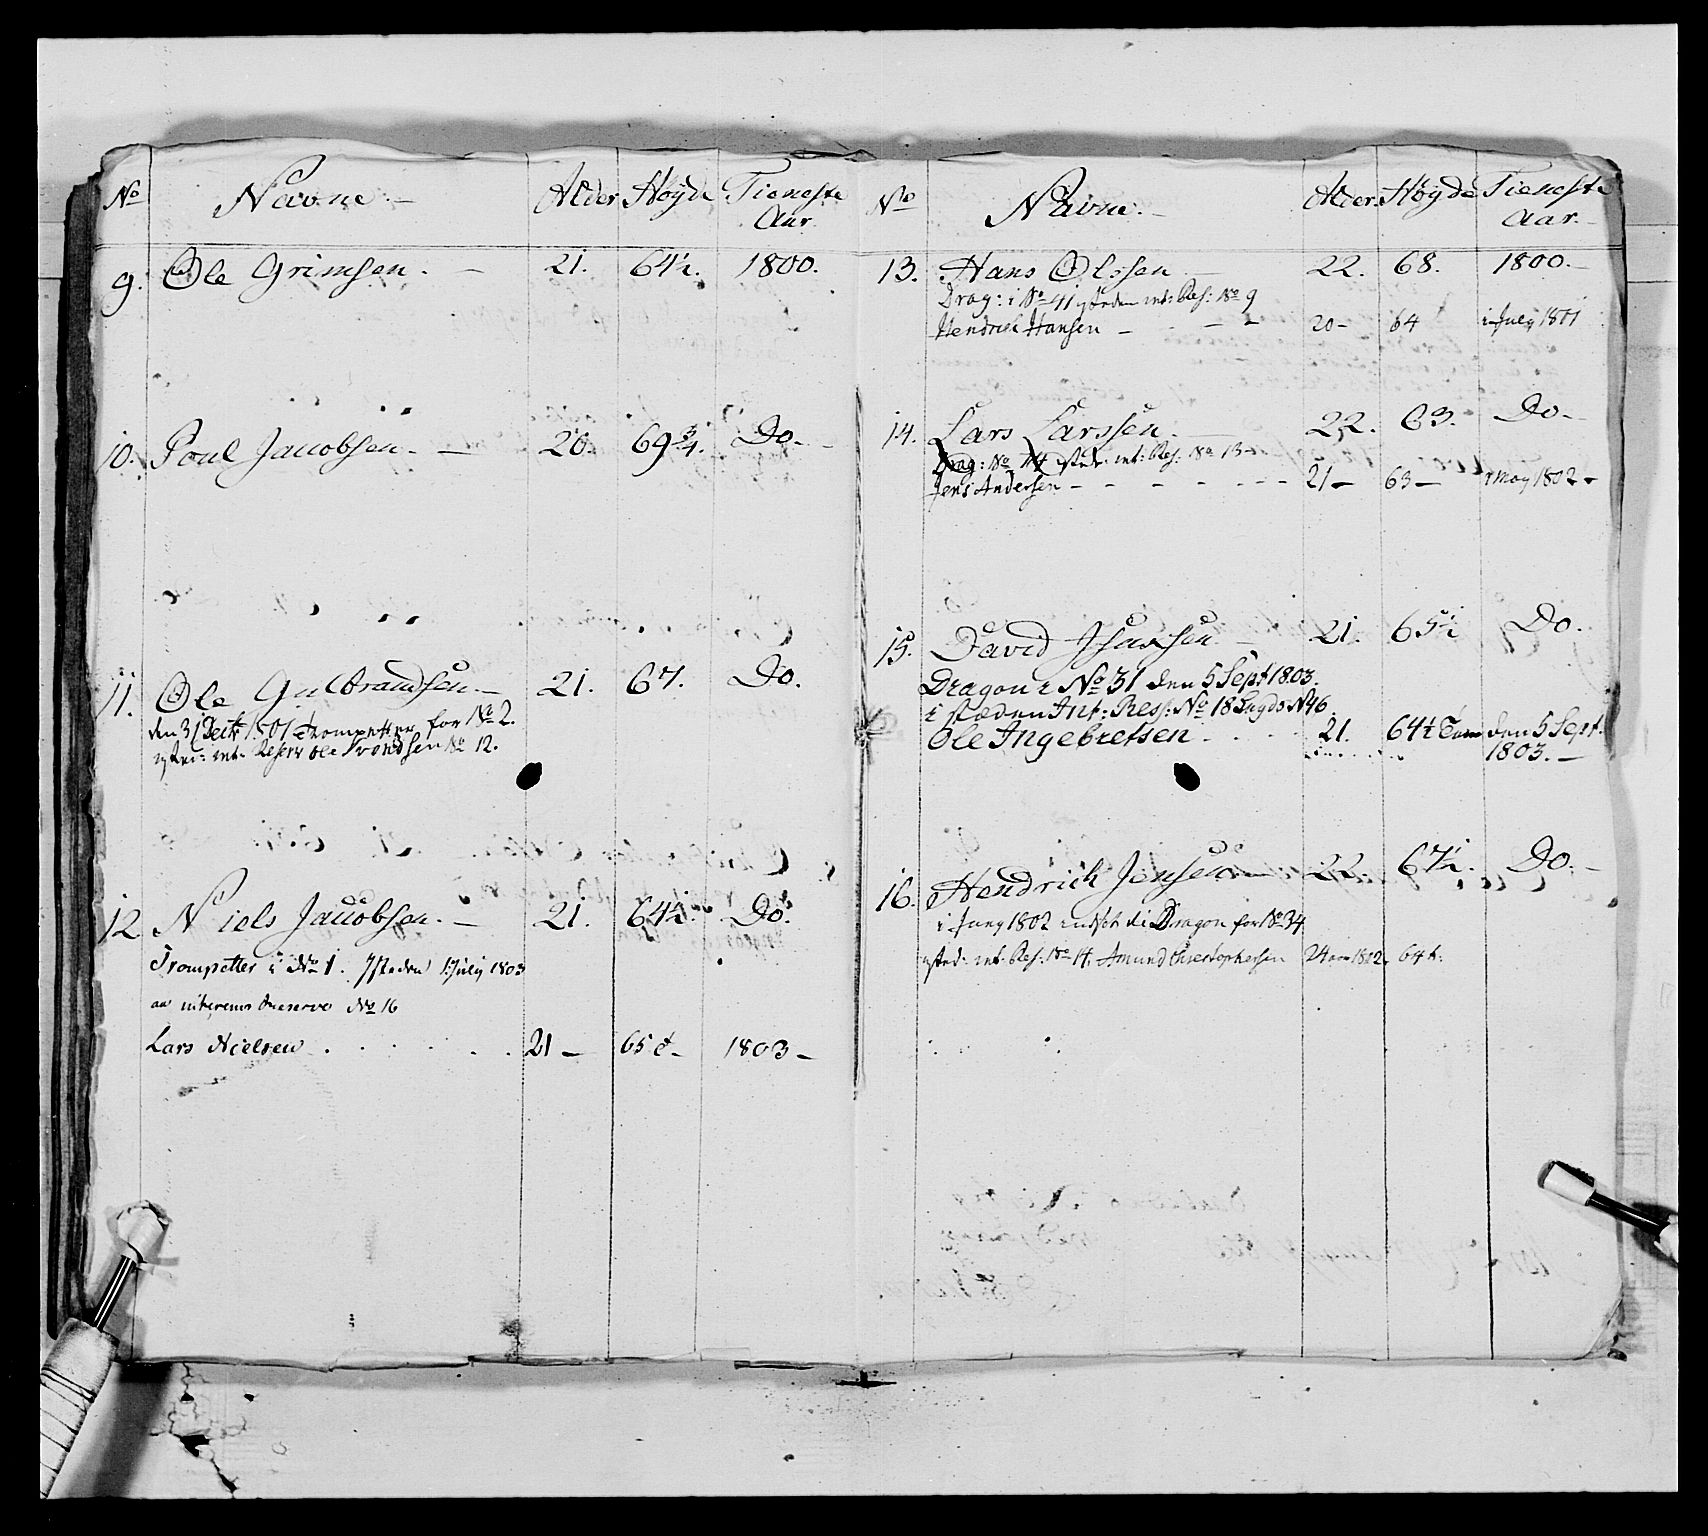 No Navne. Alder Høyde Tieneste
Aar.
9. Ole Grimsen. 21. 64½. 1800.
10. Poul Jacobsen. 20. 69¾. Do.
11. Ole Gulbrandsen. 21. 67. Do.
den 31 Decb 1801 Trompetter for No 2.
isted: int: Reserv Ole Trondsen No 12.
12 Niels Jacobsen. 21. 64½. Do.
Trompetter i No 1. Isteden 1 July 1803
No 16
Lars Nielsen 21 65 1803
No Navne. Alder. Høyde Tieneste
Aar.
13. Hans Olssen 22. 68. 1800.
Drag: i No 41 isteden int: Res: No 9
Hendrich Hansen 20 64 July 1801
14. Lars Larssen. 22. 63. Do
Drag: No 14 isted: int: Res: No 13
Jens Andersen 21 63 May 1802
15. David Isacsen 21. 65½ Do.
Dragon i No 31 den 5 Sept 1803.
i stæden Int: Ress: No 18 Lægds N 46.
Ole Ingebretsen 21. 64½ Tom den 5 Sept.
1803.
16. Hendrich Jensen 22. 67½. Do.
i Juny 1802 Dragon for No 34
isted: int: Res: No 14 Amund Christophersen 24 1802 64